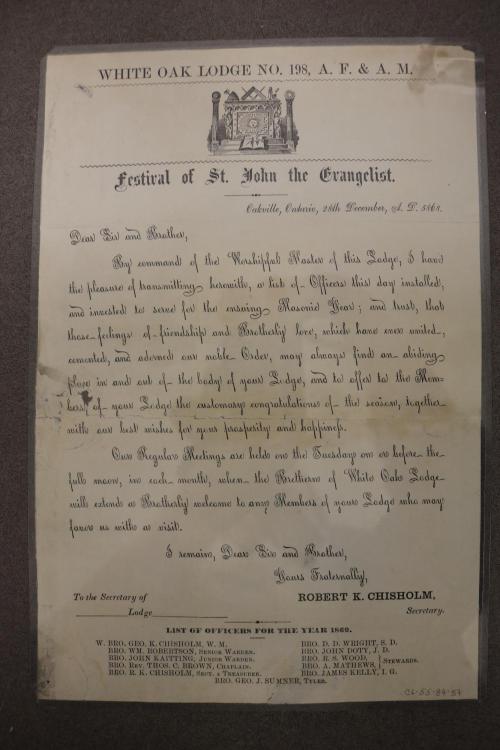 WHITE OAK LODGE NO. 198, A. F. & A. M.
Festival of St. John the Evangelist.
Oakville, Ontario, 28th December, A. D. 5868.
Dear Sir and Brother,
By command of the Worshipful Master of this Lodge, I have
the pleasure of transmitting herewith, a list of Officers this day installed,
and invested to serve for the ensuing Masonic Year; and trust, that
those feelings of friendship and Brotherly love, which have ever united,
cemented, and adorned our noble Order, may always find an abiding
place in and out of the body of your Lodge, and to offer to the Mem-
bers of your Lodge the customary congratulations of the season, together
with our best wishes for your prosperity and happiness.
Our Regular Meetings are held on the Tuesday on or before the
full moon, in each month, when the Brethern of White Oak Lodge
will extend a Brotherly welcome to any Members of your Lodge who may
favor us with a visit.
I remain, Dear Sir and Brother,
Yours Fraternally,
To the Secretary of ROBERT K. CHISHOLM,
Lodge Secretary.
LIST OF OFFICERS FOR THE YEAR 1869.
W. BRO. GEO. K. CHISHOLM, W. M. BRO. D. D. WRIGHT, S. D.
BRO. WM. ROBERTSON, SENIOR WARDEN. BRO. JOHN DOTY, J. D.
BRO. JOHN KAITTING, JUNIOR WARDEN. BRO. R. S. WOOD,
BRO. REV. THOS. C. BROWN, CHAPLAIN. BRO. A. MATHEWS, STEWARDS.
BRO. R. K. CHISHOLM, SECY. & TREASURER. BRO. JAMES KELLY, I. G.
BRO. GEO. J. SUMNER, TYLER.